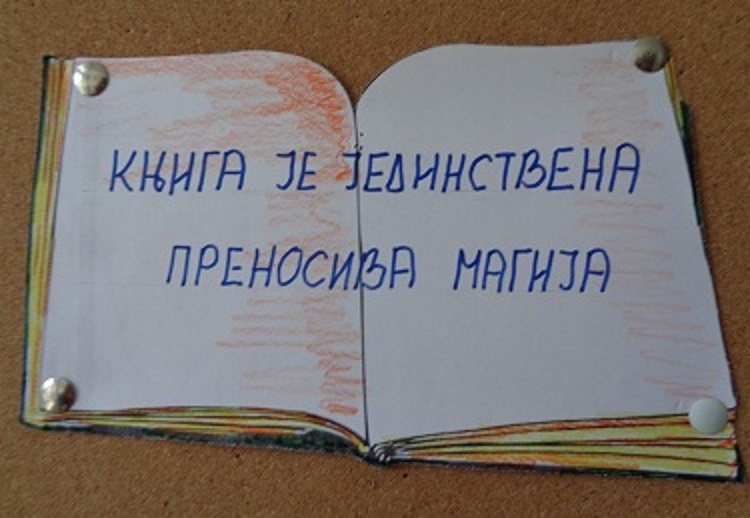 КЊИГА ЈЕ ЈЕДИНСТВЕНА
ПРЕНОСИВА МАГИЈА